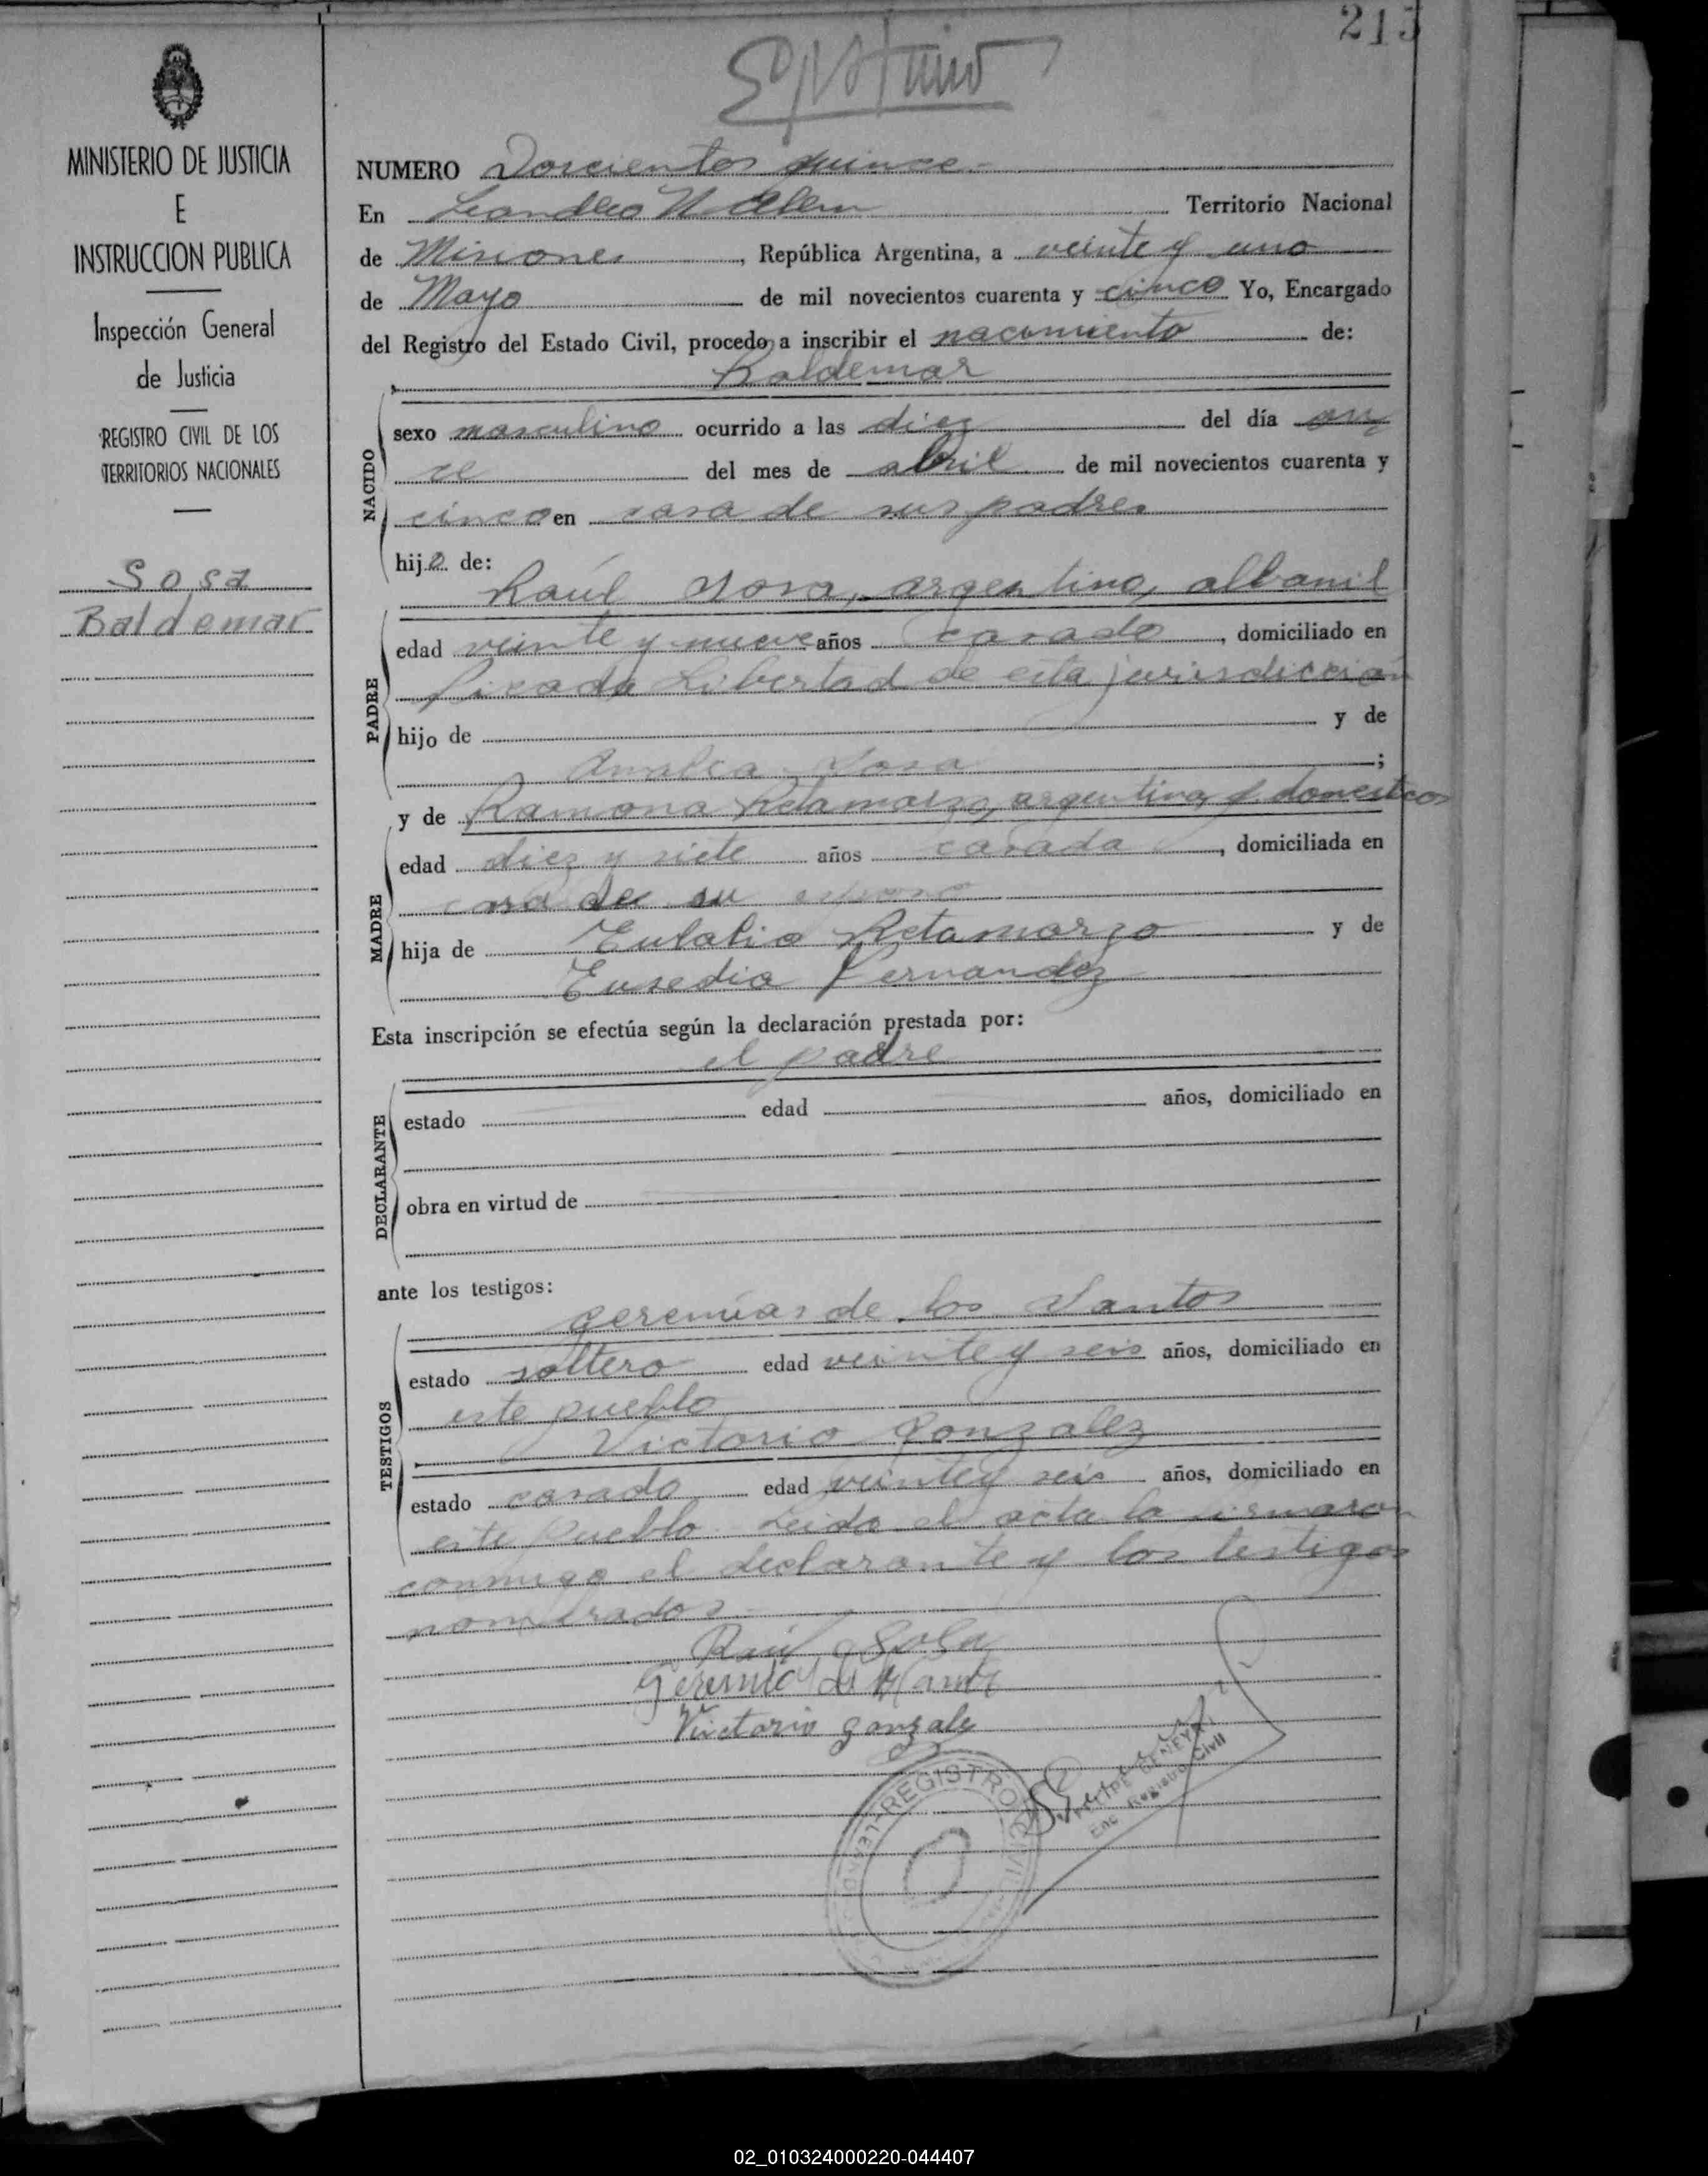 215
MINISTERIO DE JUSTICIA
E
INSTRUCCION PUBLICA
Inspección General
de Justicia
REGISTRO CIVIL DE LOS
TERRITORIOS NACIONALES
Sosa
Baldemar
NUMERO Doscientos quince
En Leandro N Alem Territorio Nacional
de Misiones, República Argentina, a veinte y uno
de Mayo de mil novecientos cuarenta y cinco Yo, Encargado
del Registro del Estado Civil, procedo a inscribir el nacimiento de:
Baldemar
NACIDO
sexo masculino ocurrido a las diez del día on
ce del mes de abril de mil novecientos cuarenta y
cinco en casa de sus padres
hijo de:
Raúl Sosa, argentino, albanil
PADRE
edad veinte y nueve años casado, domiciliado en
Picada Libertad de esta jurisdiccion
hijo de y de
Amalia Sosa;
y de Ramona Retamarzo, argentina, q. domesticos
MADRE
edad diez y siete años casada, domiciliada en
casa de su esposo
hija de Eulalio Retamarzo y de
Eusedia Fernandez
Esta inscripción se efectúa según la declaración prestada por:
el padre
DECLARANTE
estado edad años, domiciliado en
obra en virtud de
ante los testigos:
geremias de los Santos
TESTIGOS
estado soltero edad veinte y seis años, domiciliado en
este pueblo
Victorio Gonzalez
estado casado edad veinte y seis años, domiciliado en
este pueblo. Leida el acta la firmaron
conmigo el declarante y los testigos
nombrados.
Raúl Sosa
Geremia de
Victorio gonzalez
REGISTRO CIVIL
Enc. Registro Civil
02_010324000220-044407